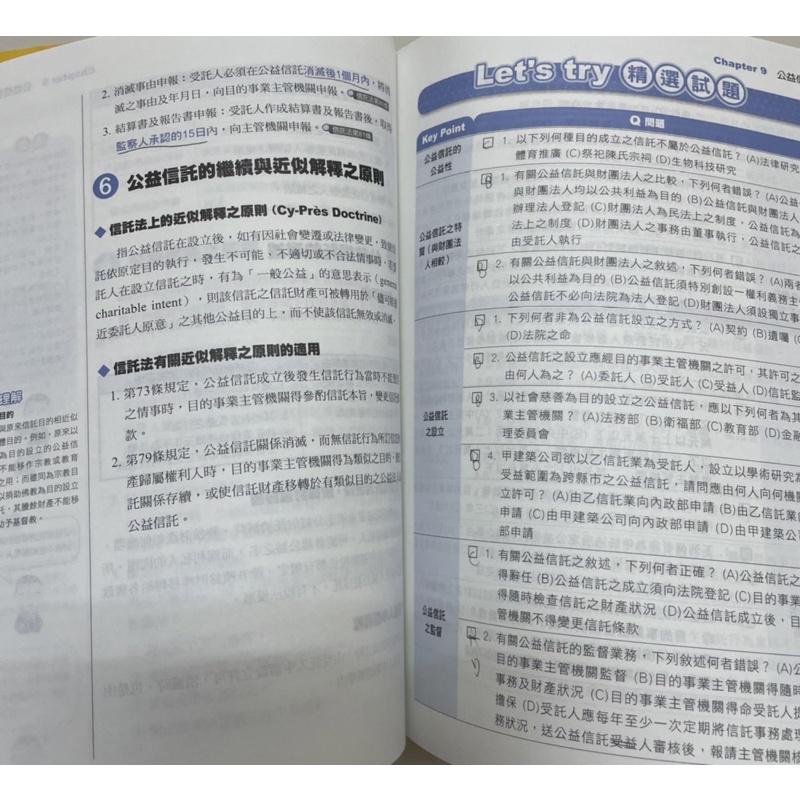 2. 消滅事由申報：受託人必須在公益信託消滅後1個月內，將消
滅之事由及年月日，向目的事業主管機關申報。
3. 結算書及報告書申報：受託人作成結算書及報告書後，取得
監察人承認的15日內，向主管機關申報。
6 公益信託的繼續與近似解釋之原則
◆ 信託法上的近似解釋之原則（Cy-Près Doctrine）
指公益信託在設立後，如有因社會變遷或法律變更，致
託依原定目的執行，發生不可能、不適切或不合法情事時，若
託人在設立信託之時，有為「一般公益」的意思表示（general
charitable intent），則該信託之信託財產可被轉用於「儘可能
近委託人原意」之其他公益目的上，而不使該信託無效或消滅。
◆ 信託法有關近似解釋之原則的適用
1. 第73條規定，公益信託成立後發生信託行為當時不能預
之情事時，目的事業主管機關得參酌信託本旨，變更信託
款。
2. 第79條規定，公益信託關係消滅，而無信託行為所訂信託
產歸屬權利人時，目的事業主管機關得為類似之目的，使
託關係存續，或使信託財產移轉於有類似目的之公益法人
公益信託。
理解
目的
與原來信託目的相近似
體目的。例如，原來以
為目的設立的公益信
不能移作宗教或教育
之用；而雖同為宗教目
以捐助佛教為目的設立
託，其賸餘財產不能移
助予基督教。
Chapter 9 公益信
Let's try 精選試題
Key Point Q 問題
公益信託的
公益性
1. 以下列何種目的成立之信託不屬於公益信託？(A)法律研究
體育推廣 (C)祭祀陳氏宗祠 (D)生物科技研究
公益信託之特
質（與財團法
人相較）
1. 有關公益信託與財團法人之比較，下列何者錯誤？(A)公益信
與財團法人均以公共利益為目的 (B)公益信託與財團法人
辦理法人登記 (C)財團法人為民法上之制度，公益信託為
法上之制度 (D)財團法人之事務由董事執行，公益信託之
由受託人執行
2. 有關公益信託與財團法人之敘述，下列何者錯誤？(A)兩者
以公共利益為目的 (B)公益信託須特別創設一權利義務主
公益信託不必向法院為法人登記 (D)財團法人須設獨立事
公益信託
之設立
1. 下列何者非為公益信託設立之方式？(A)契約 (B)遺囑 (C
(D)法院之命
2. 公益信託之設立應經目的事業主管機關之許可，其許可之
由何人為之？(A)委託人 (B)受託人 (C)受益人 (D)信託監
3. 以社會慈善為目的設立之公益信託，應以下列何者為其
業主管機關？(A)法務部 (B)衛福部 (C)教育部 (D)金融
理委員會
4. 甲建築公司欲以乙信託業為受託人，設立以學術研究為
受益範圍為跨縣市之公益信託，請問應由何人向何機關
立許可？(A)由乙信託業向內政部申請 (B)由乙信託業向
申請 (C)由甲建築公司向內政部申請 (D)由甲建築公司
部申請
公益信託
之監督
1. 有關公益信託之敘述，下列何者正確？(A)公益信託之
得辭任 (B)公益信託之成立須向法院登記 (C)目的事業
得隨時檢查信託之財產狀況 (D)公益信託成立後，目
管機關不得變更信託條款
2. 有關公益信託的監督業務，下列敘述何者錯誤？(A)公
目的事業主管機關監督 (B)目的事業主管機關得隨時
事務及財產狀況 (C)目的事業主管機關得命受託人提
擔保 (D)受託人應每年至少一次定期將信託事務處理
務狀況，送公益信託受益人審核後，報請主管機關核